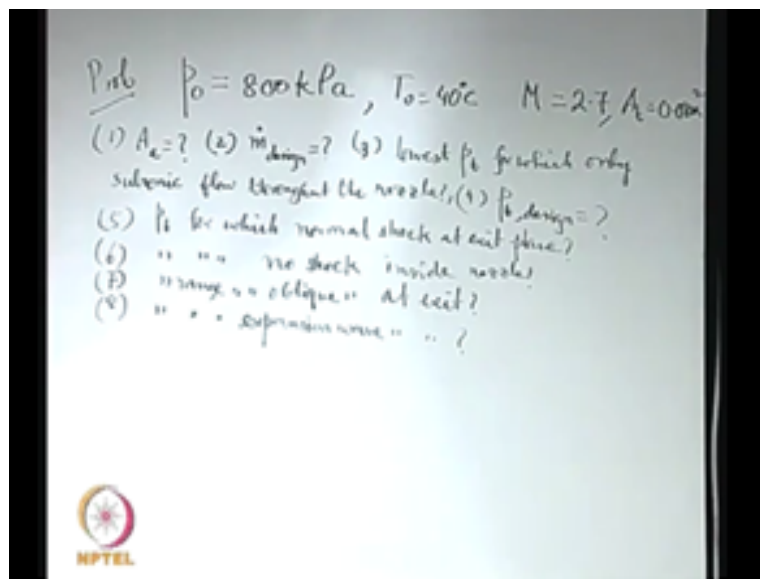 Prob P₀ = 800kPa, T₀ = 40°C M = 2.7, Aₜ = 0.08m²
(1) Aₑ = ? (2) ṁ design = ? (3) lowest P_b for which only
subsonic flow throughout the nozzle?, (4) P_b, design = ?
(5) P_b for which normal shock at exit plane?
(6) " " " no shock inside nozzle?
(7) " range " " oblique " at exit?
(8) " " " expansion wave " " ?
NPTEL